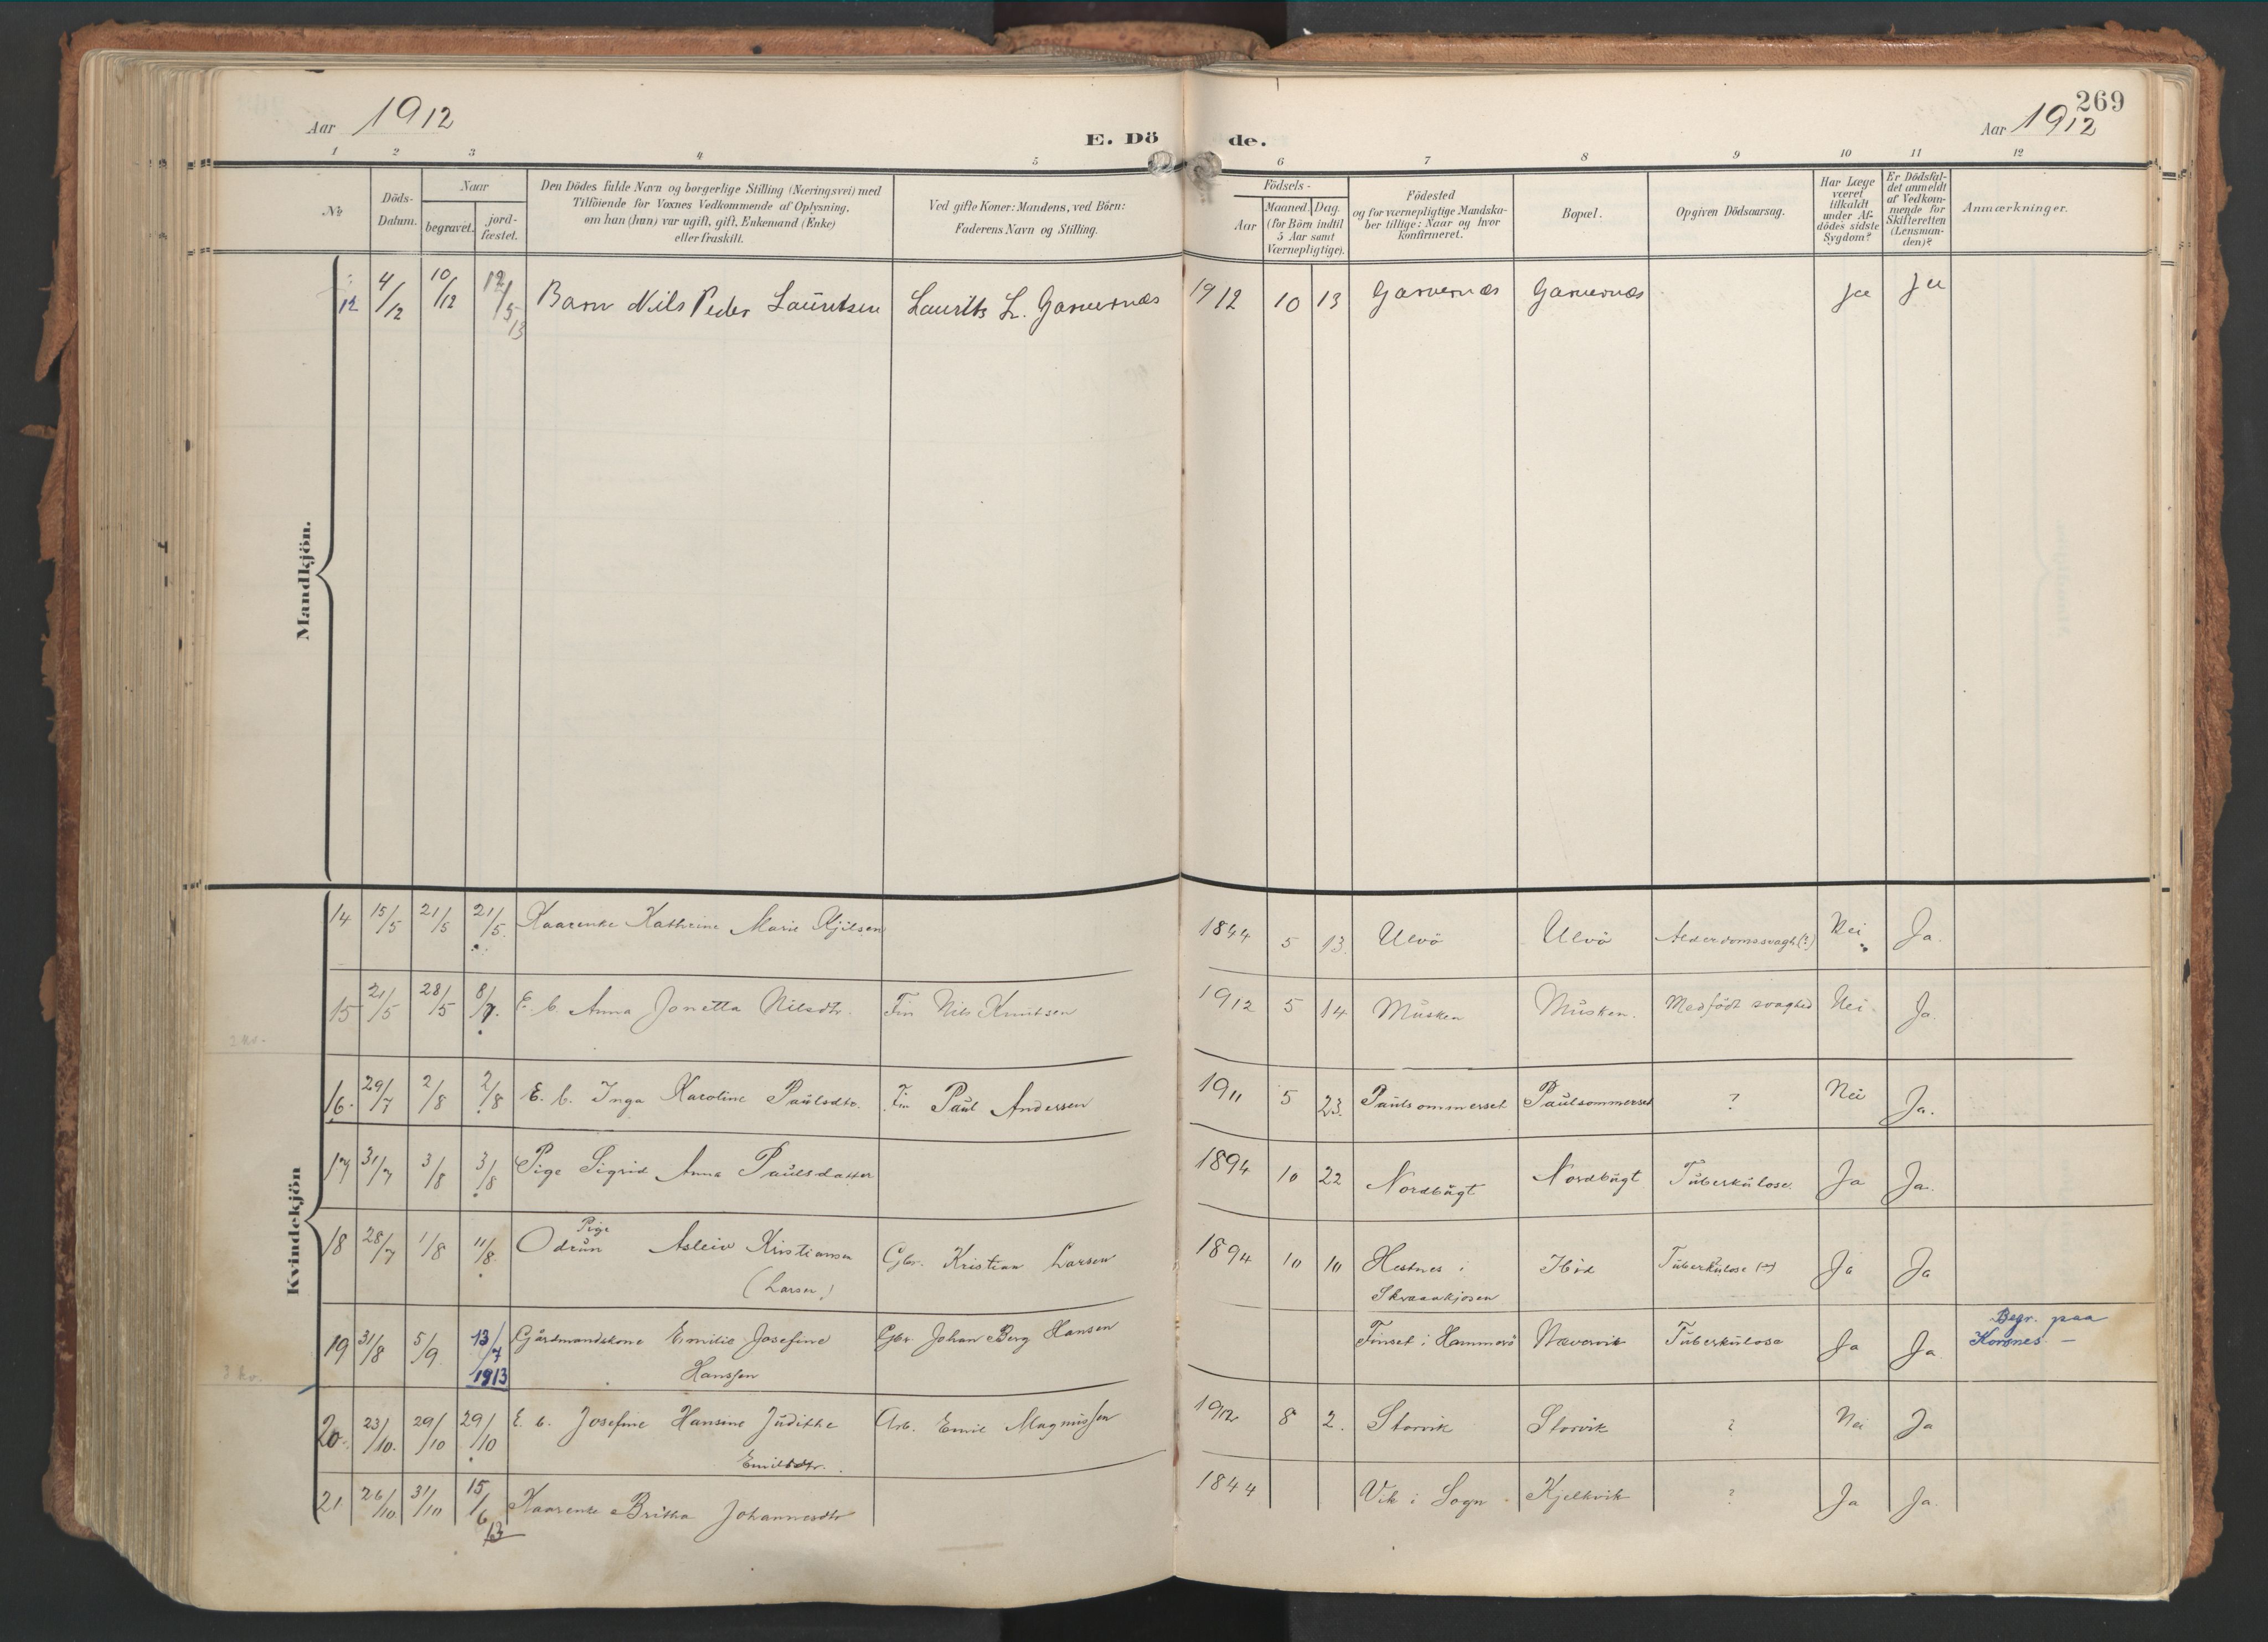 Aar 1912
E. Dö de.
269
Aar 1912
1 2 3 4 5 6 7 8 9 10 11 12
Nr
Döds-
Datum.
Naar
begravet.
jord-
fæstet.
Den Dödes fulde Navn og borgerlige Stilling (Næringsvei) med
Tilföiende for Voxnes Vedkommende af Oplysning,
om han (hun) var ugift, gift, Enkemand (Enke)
eller fraskilt.
Ved gifte Koner: Mandens, ved Börn:
Faderens Navn og Stilling.
Födsels-
Aar
Maaned. Dag.
(for Börn indtil
5 Aar samt
Værnepligtige).
Födested
og for værnepligtige Mandska-
ber tillige: Naar og hvor
konfirmeret.
Bopæl.
Opgiven Dödsaarsag.
Har Læge
været
tilkaldt
under Af-
dödes sidste
Sygdom?
Er Dödsfal-
det anmeldt
af Vedkom-
mende for
Skifteretten
(Lensman-
den)?
Anmærkninger.
Mandkjön.
12 4/12 10/12 12/5 13 Barn Nils Peder Lauritsen Laurits L. Garvernæs 1912 10 13 Garvernæs Garvernæs Ja Ja
Kvindekjön
14 15/5 21/5 21/5. Kaarenke Kathrine Marie Kjilsen 1844 5 13. Ulvö Ulvö Alderdomssvagh(?) Nei Ja.
15 21/5 28/5 8/7. E. b. Anna Jonetta Nilsdtr. Fin Nils Knutsen 1912 5 14 Musken Musken. Medfödt svaghed Nei Ja.
16. 29/7 2/8 2/8 E. b. Inga Karoline Paulsdtr. Fin Paul Andersen 1911 5 23. Paulsommerset Paulsommerset ? Nei Ja.
17 31/7 3/8 3/8 Pige Sigrid Anna Paulsdatter 1894 10 22 Nordbugt Nordbugt Tuberkulose. Ja Ja.
Pige
18 28/7 1/8 11/8. Odrun Asleiv Kristiansen Gbr. Kristian Larsen 1894 10 10 Hestnes i Tuberkulose Ja Ja
(Larsen) Skraaakjosen
19 31/8 5/9. 13/7 1913 Gårdmandskone Emilie Josefine Gbr. Johan Berg Hansen Finset i Hammerö Nævervik Tuberkulose Ja Ja Begr. paa
Hanssen Korsnes –
20. 23/10. 29/10 29/10 E. b. Josefine Hansine Judithe Arb. Emil Magnussen 1912 8 2. Storvik Storvik ? Nei Ja
Emilsdtr.
21 26/10 31/10 15/6 13 Kaarenke Britha Johannesdtr 1844 Vik i Sogn Kjelkvik ? Ja Ja.